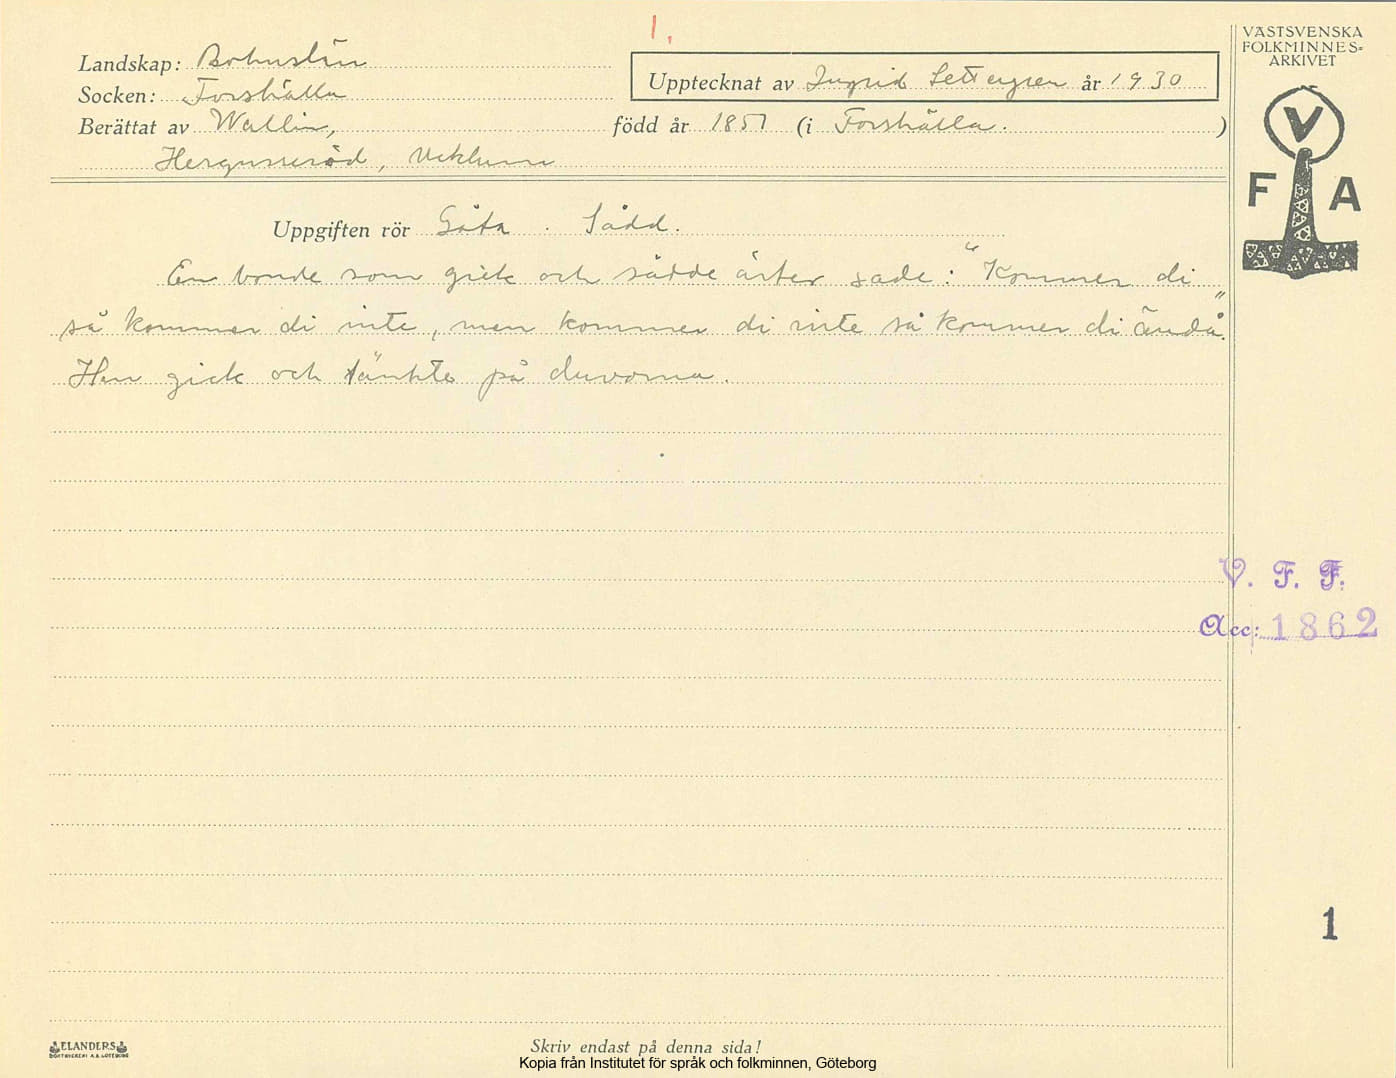 1.
VÄSTSVENSKA
FOLKMINNES=
ARKIVET
V
F A
Landskap: Bohuslän
Upptecknat av Ingrid Settergren år 1930
Socken: Forshälla
Berättat av Wallin, född år 1851 (i Forshälla. )
Hergusseröd,
Uppgiften rör Gåta. Sådd.
En bonde som gick och sådde ärter sade: "Kommer di
så kommer di inte, men kommer di inte så kommer di ändå".
Han gick och tänkte på duvorna.
V. F. F.
Acc: 1862
1
ELANDERS
BOKTRYCKERI A.B. GÖTEBORG
Skriv endast på denna sida!
Kopia från Institutet för språk och folkminnen, Göteborg